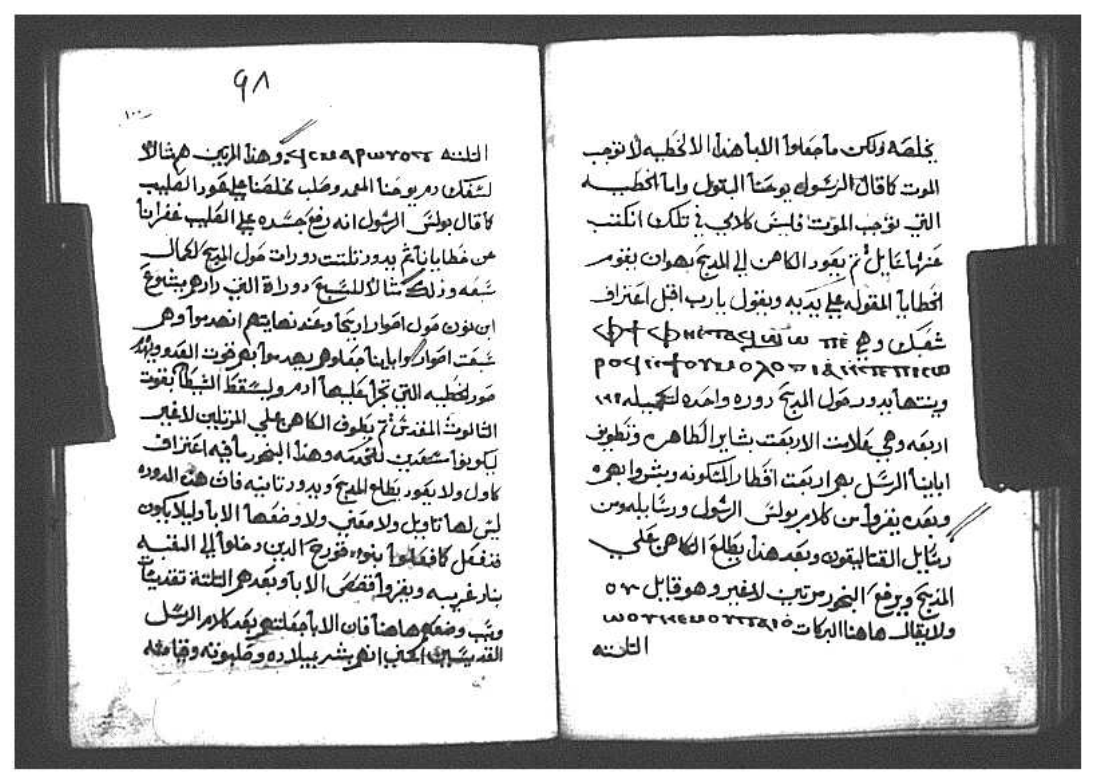 يخلصه ولكن ما جعلوا الابا هذا الا لخطيه لا توجب
الموت كما قال الرسول يوحنا البتول واما الخطيـه
التي توجب الموت فليس كلامي في تلك انكتب
عنها قايل ثم يعود الكاهن الي المدبح بعوان يقوم
الخطايا المقوله علي يديه ويقول يارب اقبل اعتراف
شعبك وهي ⲫϯ ⲫⲏⲉⲧⲁϥ
وينتها يدور حول المدبح دوره واحده لتكميله
اربعه وهي علامت الاربعت بشاير الطاهره وتطويف
اباينا الرسل بهم اربعت اقطار المسكونه وبشروا بهم
وبعده يقروا من كلام بولس الرسول ورسايله ومن
رسايل القتاليقون وبعد هذا يطلع الكاهن علي
المدبح ويرفع البخور مرتين لا غير وهو قايل
ولا يقال هاهنا البركات
التلته
٩٨
١٠٠
التلته وهذا المرتين هم مثالا
لسفك دم يوحنا المعمد وصلب مخلصنا علي عود الصليب
كما قال بولس الرسول انه رفع جسده علي الصليب غفرانا
عن خطايانا ثم يدور تلتت دورات حول المدبح لكمال
سبعه وذلك مثالا للسبع دوراة التي دارهم يشوع
ابن نون حول اصوار اريحا وعند نهايتهم انهدموا وهي
سبعت اصوار واباينا جعلوهم يهدموا بهم قوت العدو
صور الخطيه التي تجرا عليها ادم وليسقط الشيطا بقوت
التالوت المقدس ثم يطوف الكاهن علي المرتلين لا غير
ليكونوا مستعدين للخدمه وهذا البخور ما فيه اعتراف
كاول ولا يعود يطلع المدبح ويدور تانيه فان هذه الدوره
ليس لها تاويل ولا معني ولا وضعها الابا وليلا يكون
قد فعل كما فعلوا بنوه قورح الدين دخلوا الي القبه
بنار غريبه ويقروا قصص الابا وبعدهم التلتة تقديسات
وسبب وضعهم هاهنا فان الابا جعلتهم بعد كلام الرسل
القديسين الدي انهم بشر بميلاده وصلبوته وقيامته